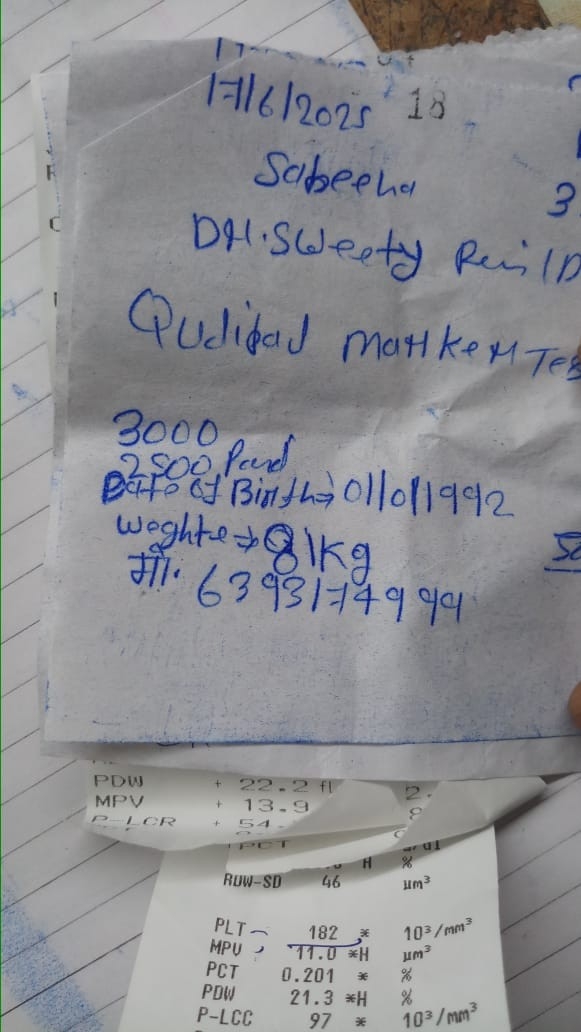 17/6/2025 18
Sabeeha 3
DH.Sweety
Qudipad MaHkeH Tes
3000
2500 Paid
Date of Birth⇒ 01/01/1992
Weghte⇒ 81kg
मो. 6393174999
PDW + 22.2 fl 2.
MPV + 13.9
P-LCR + 54.
PCT
H %
RDW-SD 46 µm³
PLT 182 * 10³/mm³
MPV 11.0 *H µm³
PCT 0.201 * %
PDW 21.3 *H %
P-LCC 97 * 10³/mm³